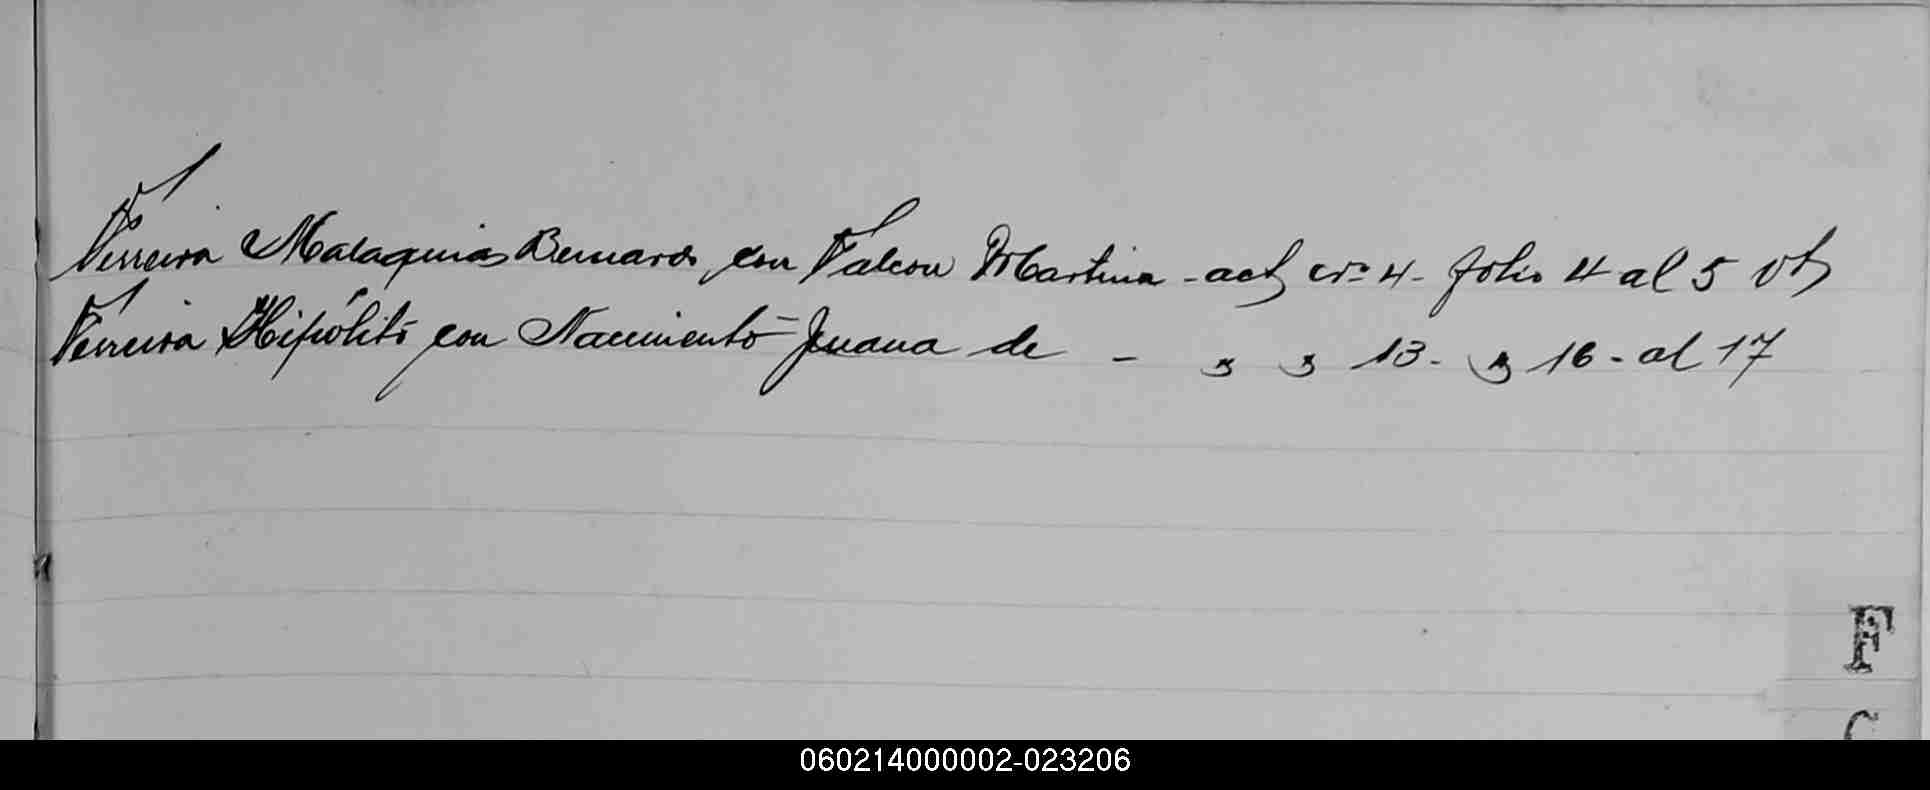 Ferreira Malaquias Bernardo con Falcon Martina - act nº 4 - folio 4 al 5 vto
Ferreira Hipólito con Nacimento Juana de - " " 13 - " 16 - al 17
F
060214000002-023206